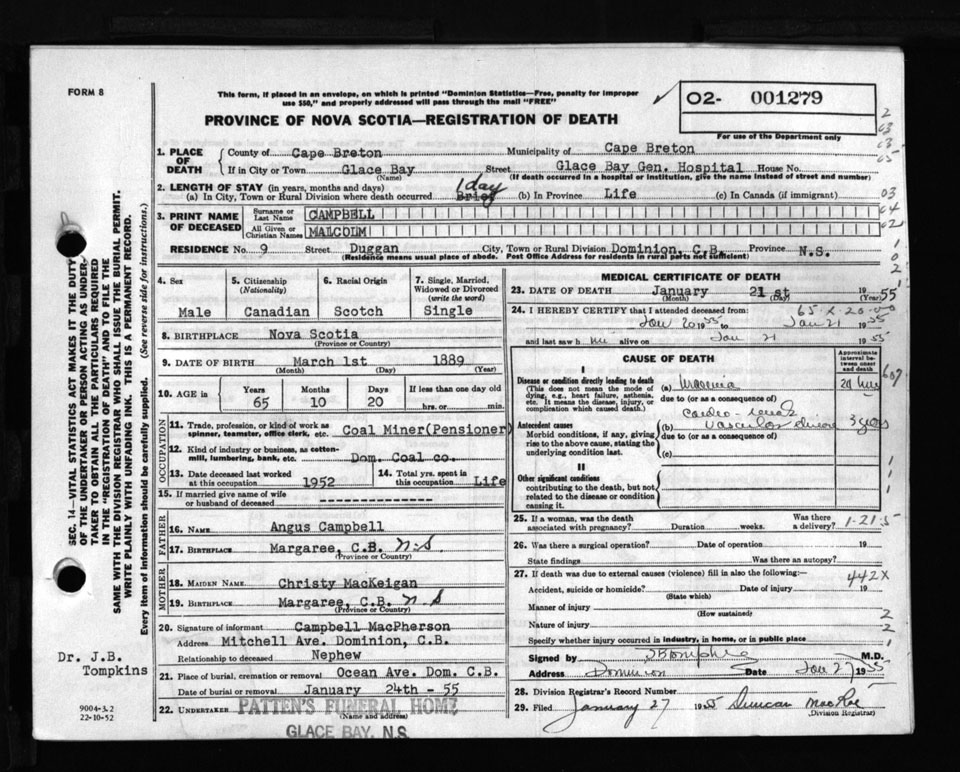 FORM 8
This form, if placed in an envelope, on which is printed "Dominion Statistics—Free, penalty for improper
use $50," and properly addressed will pass through the mail "FREE"
PROVINCE OF NOVA SCOTIA—REGISTRATION OF DEATH
02- 001279
For use of the Department only
1. PLACE OF DEATH
County of Cape Breton Municipality of Cape Breton
If in City or Town Glace Bay Street Glace Bay Gen. Hospital House No.
(Name) (If death occurred in a hospital or institution, give the name instead of street and number)
2. LENGTH OF STAY (in years, months and days)
(a) In City, Town or Rural Division where death occurred 1 day Brief (b) In Province Life (c) In Canada (if immigrant)
3. PRINT NAME OF DECEASED
Surname or Last Name CAMPBELL
All Given or Christian Names MALCOLM
RESIDENCE No. 9 Street Duggan City, Town or Rural Division Dominion, C.B. Province N.S.
(Residence means usual place of abode. Post Office Address for residents in rural parts not sufficient)
4. Sex
Male
5. Citizenship
(Nationality)
Canadian
6. Racial Origin
Scotch
7. Single, Married, Widowed or Divorced
(write the word)
Single
8. BIRTHPLACE Nova Scotia
(Province or Country)
9. DATE OF BIRTH March 1st 1889
(Month) (Day) (Year)
10. AGE in Years Months Days If less than one day old
65 10 20 hrs. or min.
OCCUPATION
11. Trade, profession, or kind of work as
spinner, teamster, office clerk, etc. Coal Miner(Pensioner)
12. Kind of industry or business, as cotten-
mill, lumbering, bank, etc. Dom. Coal co.
13. Date deceased last worked
at this occupation 1952
14. Total yrs. spent in
this occupation Life
15. If married give name of wife
or husband of deceased
FATHER
16. NAME Angus Campbell
17. BIRTHPLACE Margaree, C.B. N.S.
(Province or Country)
MOTHER
18. MAIDEN NAME Christy MacKeigan
19. BIRTHPLACE Margaree, C.B. N.S
(Province or Country)
20. Signature of informant Campbell MacPherson
Address Mitchell Ave. Dominion, C.B.
Relationship to deceased Nephew
21. Place of burial, cremation or removal Ocean Ave. Dom. C.B.
Date of burial or removal January 24th - 55
22. UNDERTAKER PATTEN'S FUNERAL HOME
(Name and address)
GLACE BAY, N.S.
MEDICAL CERTIFICATE OF DEATH
23. DATE OF DEATH January 21st 1955
(Month) (Day) (Year)
24. I HEREBY CERTIFY that I attended deceased from:
Jan 20 1955 to Jan 21 1955
and last saw h im alive on Jan 21 1955
CAUSE OF DEATH
Approximate interval between onset and death
I
Disease or condition directly leading to death
(This does not mean the mode of dying, e.g., heart failure, asthenia, etc. It means the disease, injury, or complication which caused death.)
(a) Uraemia 24 hrs
due to (or as a consequence of)
Antecedent causes
Morbid conditions, if any, giving rise to the above cause, stating the underlying condition last.
(b) Cardio-renal vascular disease 3 years
due to (or as a consequence of)
(c)
II
Other significant conditions
contributing to the death, but not related to the disease or condition causing it.
25. If a woman, was the death
associated with pregnancy? Duration weeks. Was there a delivery?
1-21-5
26. Was there a surgical operation? Date of operation 19
State findings Was there an autopsy?
27. If death was due to external causes (violence) fill in also the following:—
442X
Accident, suicide or homicide? Date of injury 19
(State which)
Manner of injury
(How sustained)
Nature of injury
Specify whether injury occurred in industry, in home, or in public place
Signed by JB Tompkins M.D.
Address Dominion Date Jan 27 1955
28. Division Registrar's Record Number
29. Filed January 27 1955 Duncan MacRae
(Division Registrar)
SEC. 14—VITAL STATISTICS ACT MAKES IT THE DUTY
OF THE UNDERTAKER OR PERSON ACTING AS UNDER-
TAKER TO OBTAIN ALL THE PARTICULARS REQUIRED
IN THE "REGISTRATION OF DEATH" AND TO FILE THE
SAME WITH THE DIVISION REGISTRAR WHO SHALL ISSUE THE BURIAL PERMIT.
WRITE PLAINLY WITH UNFADING INK. THIS IS A PERMANENT RECORD.
Every item of information should be carefully supplied. (See reverse side for instructions.)
Dr. J.B.
Tompkins
9004-3.2
22-10-52